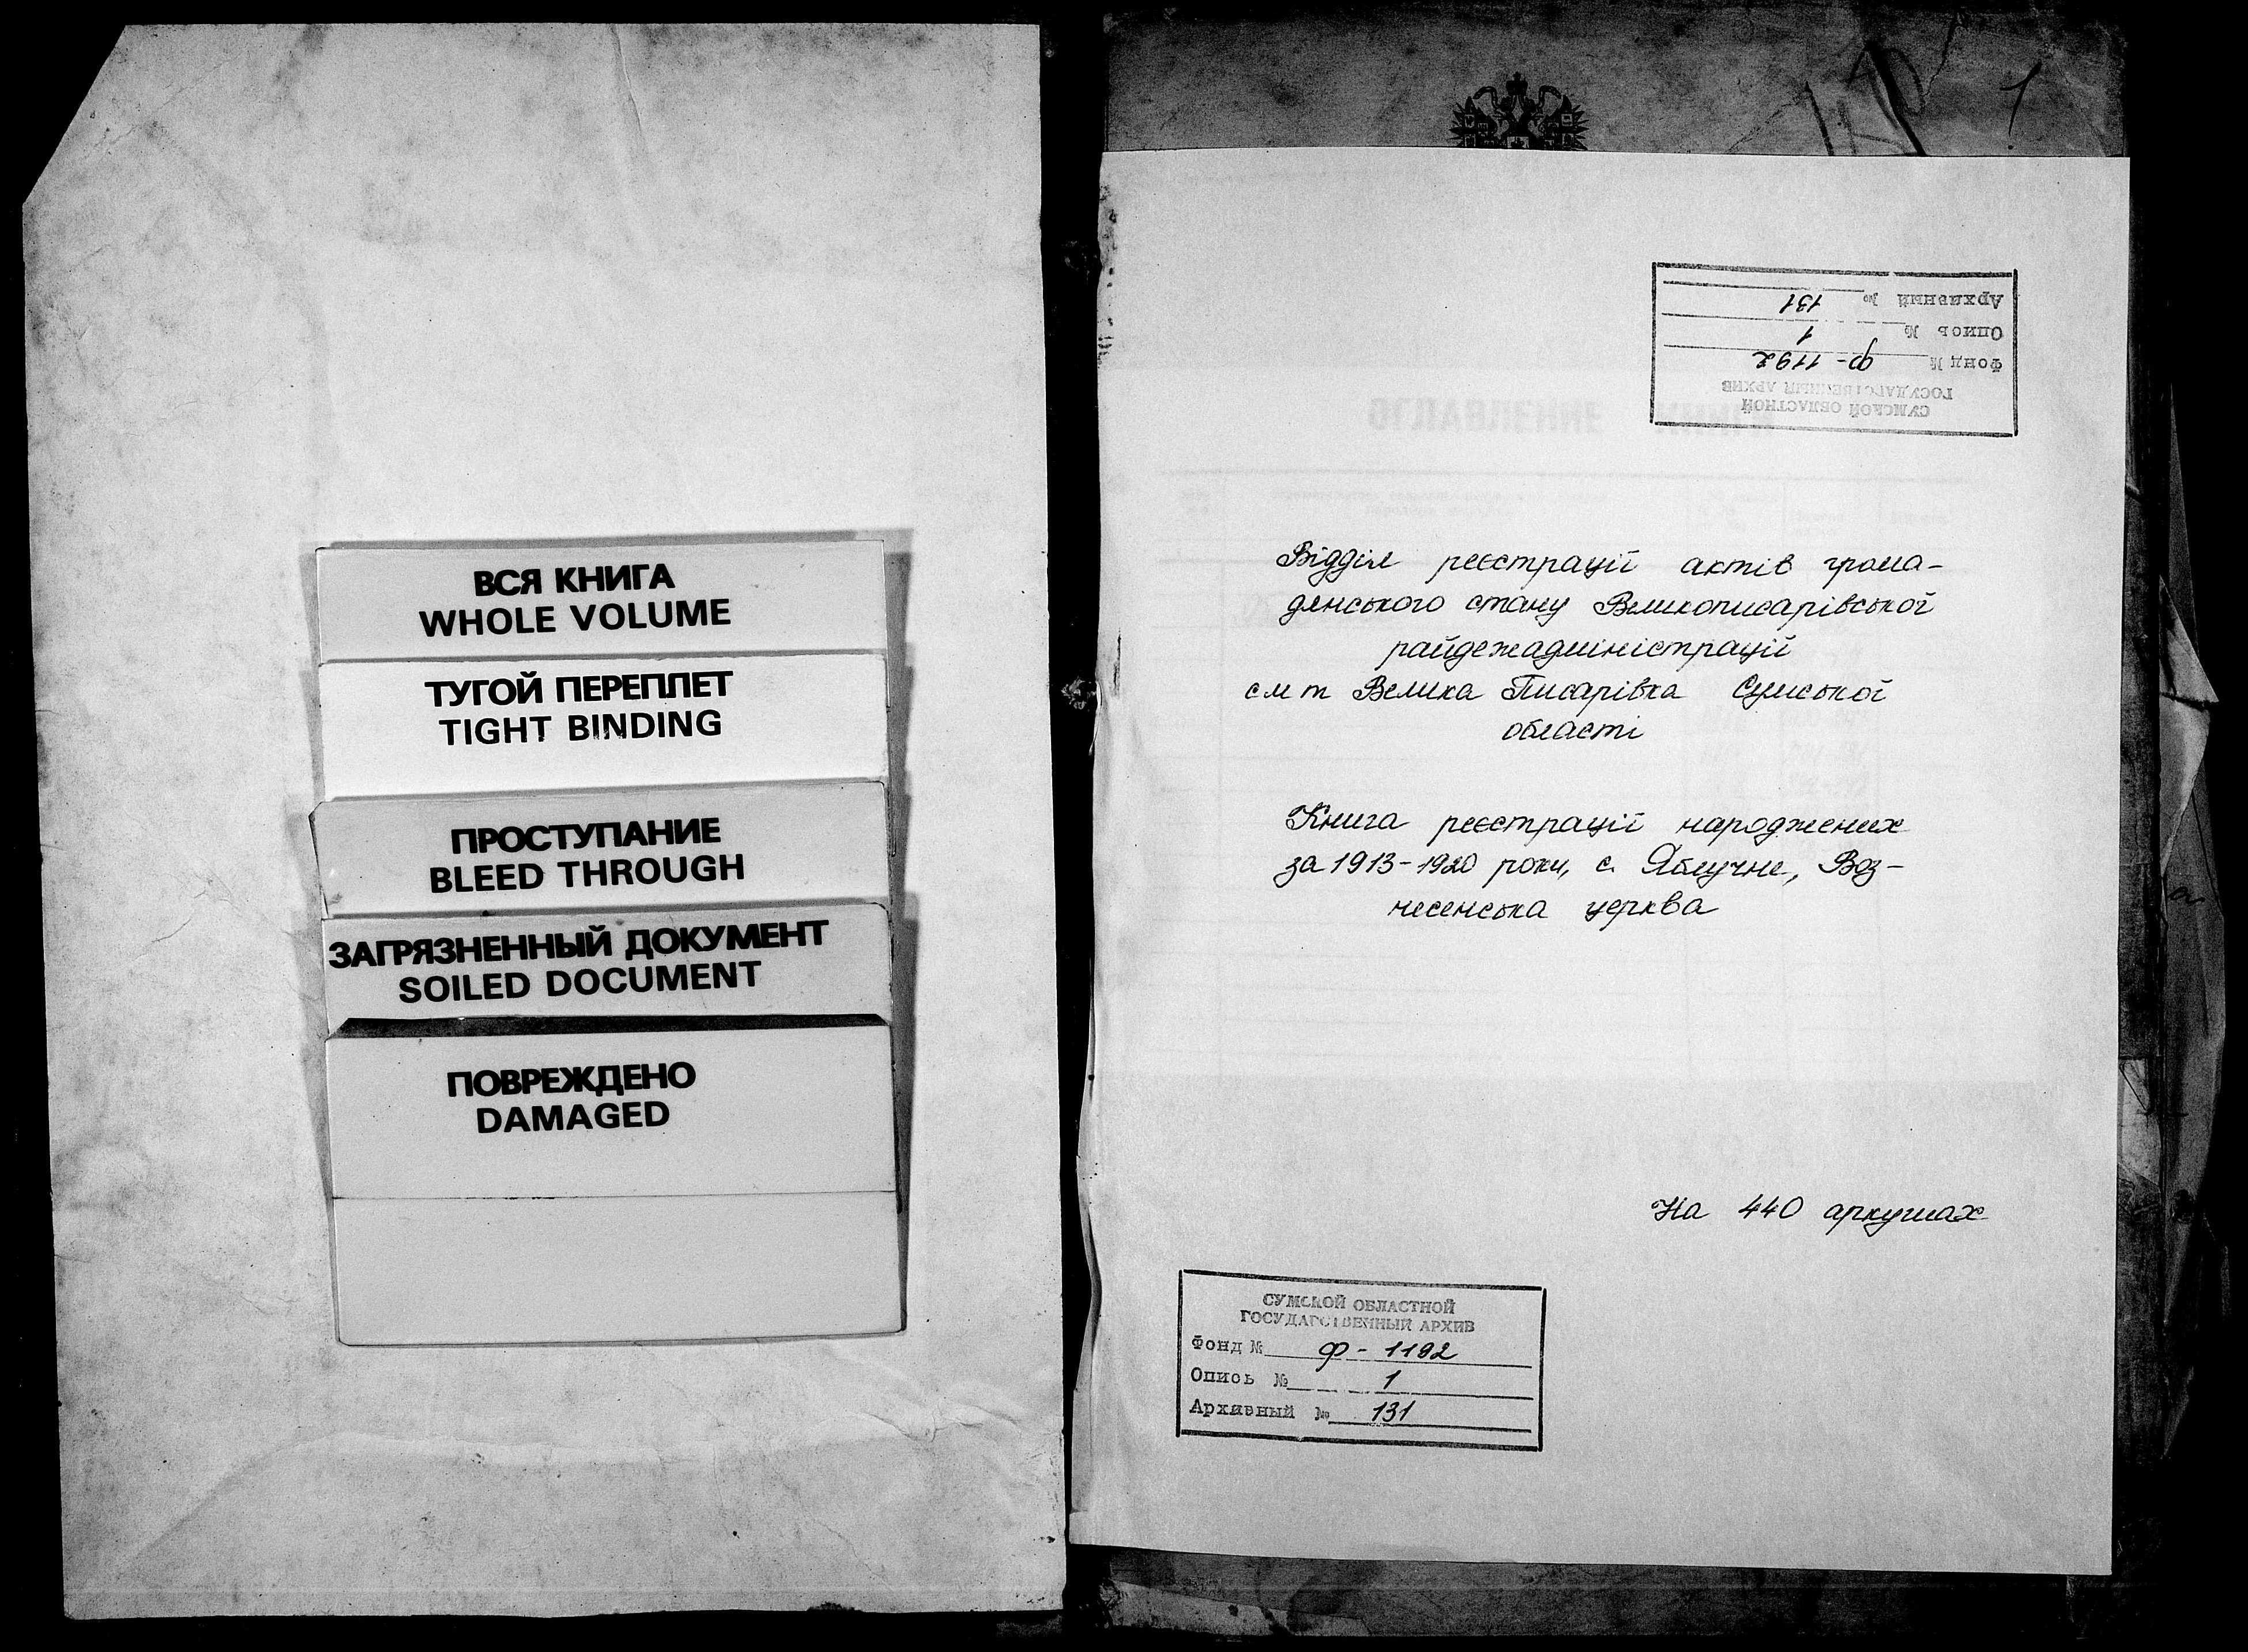 ВСЯ КНИГА
WHOLE VOLUME
ТУГОЙ ПЕРЕПЛЕТ
TIGHT BINDING
ПРОСТУПАНИЕ
BLEED THROUGH
ЗАГРЯЗНЕННЫЙ ДОКУМЕНТ
SOILED DOCUMENT
ПОВРЕЖДЕНО
DAMAGED
1
СУМСКОЙ ОБЛАСТНОЙ
ГОСУДАРСТВЕННЫЙ АРХИВ
Фонд № Ф-1192
Опись № 1
Архивный № 131
ОГЛАВЛЕНИЕ
Відділ реєстрації актів грома-
дянського стану Великописарівської
райдежадміністрації
смт Велика Писарівка Сумської
області
Книга реєстрації народжених
за 1913-1920 роки, с. Яблучне, Воз-
несенська церква
На 440 аркушах
СУМСКОЙ ОБЛАСТНОЙ
ГОСУДАРСТВЕННЫЙ АРХИВ
Фонд № Ф-1192
Опись № 1
Архивный № 131